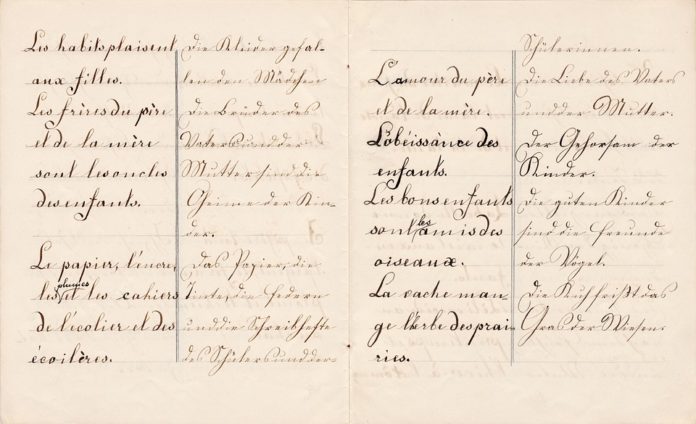 Les habits plaisent
aux filles.
Les frères du père
et de la mère
sont les oncles
des enfants.
Le papier, l'encre,
les plumes et les cahiers
de l'écolier et des
écoilères.
Die Kleider gefal-
len den Mädchen
Die Brüder des
Vaters und der
Mutter sind die
Oheime der Kin-
der.
Das Papier, die
Tinte, die Federn
und die Schreibhefte
des Schülers und der
L'amour du père
et de la mère.
L'obéissance des
enfants.
Les bons enfants
sont les amis des
oiseaux.
La vache man-
ge l'herbe des prai-
ries.
Schülerinnen.
Die Liebe des Vaters
und der Mutter.
Der Gehorsam der
Kinder.
Die guten Kinder
sind die Freunde
der Vögel.
Die Kuh frißt das
Gras der Wiesen.